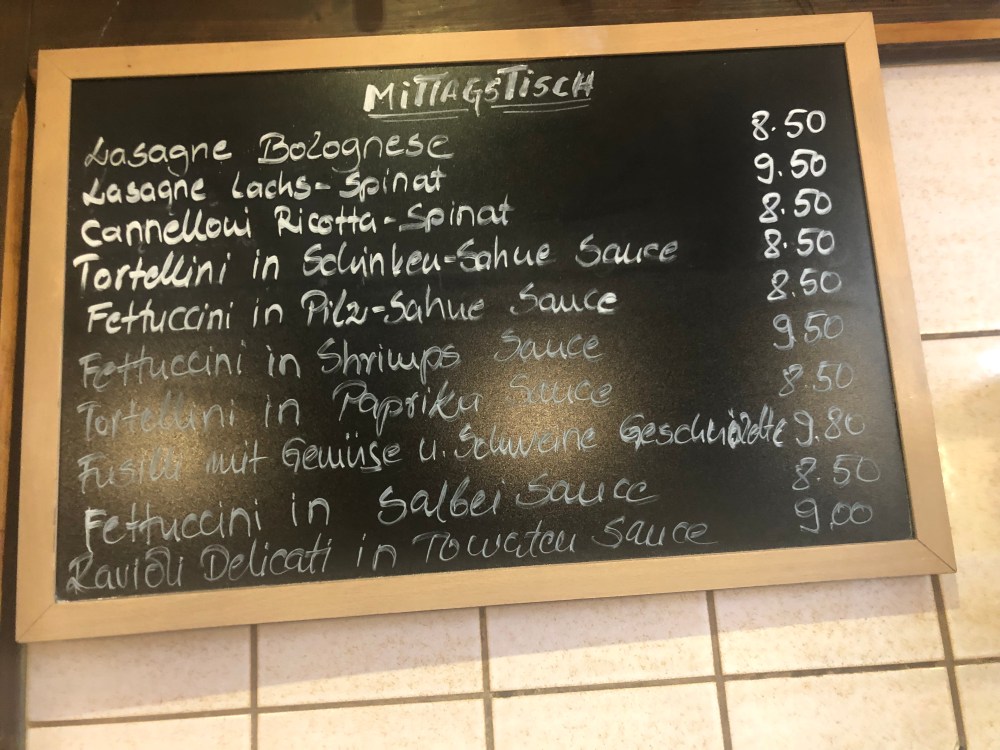 MITTAGSTISCH
Lasagne Bolognese 8.50
Lasagne Lachs-Spinat 9.50
Cannelloni Ricotta-Spinat 8.50
Tortellini in Schinken-Sahne Sauce 8.50
Fettuccini in Pilz-Sahne Sauce 8.50
Fettuccini in Shrimps Sauce 9.50
Tortellini in Paprika Sauce 8.50
Fusilli mit Gemüse u. Schweine 9.80
Fettuccini in Salbei Sauce 8.50
Ravioli Delicati in Tomaten Sauce 9.00